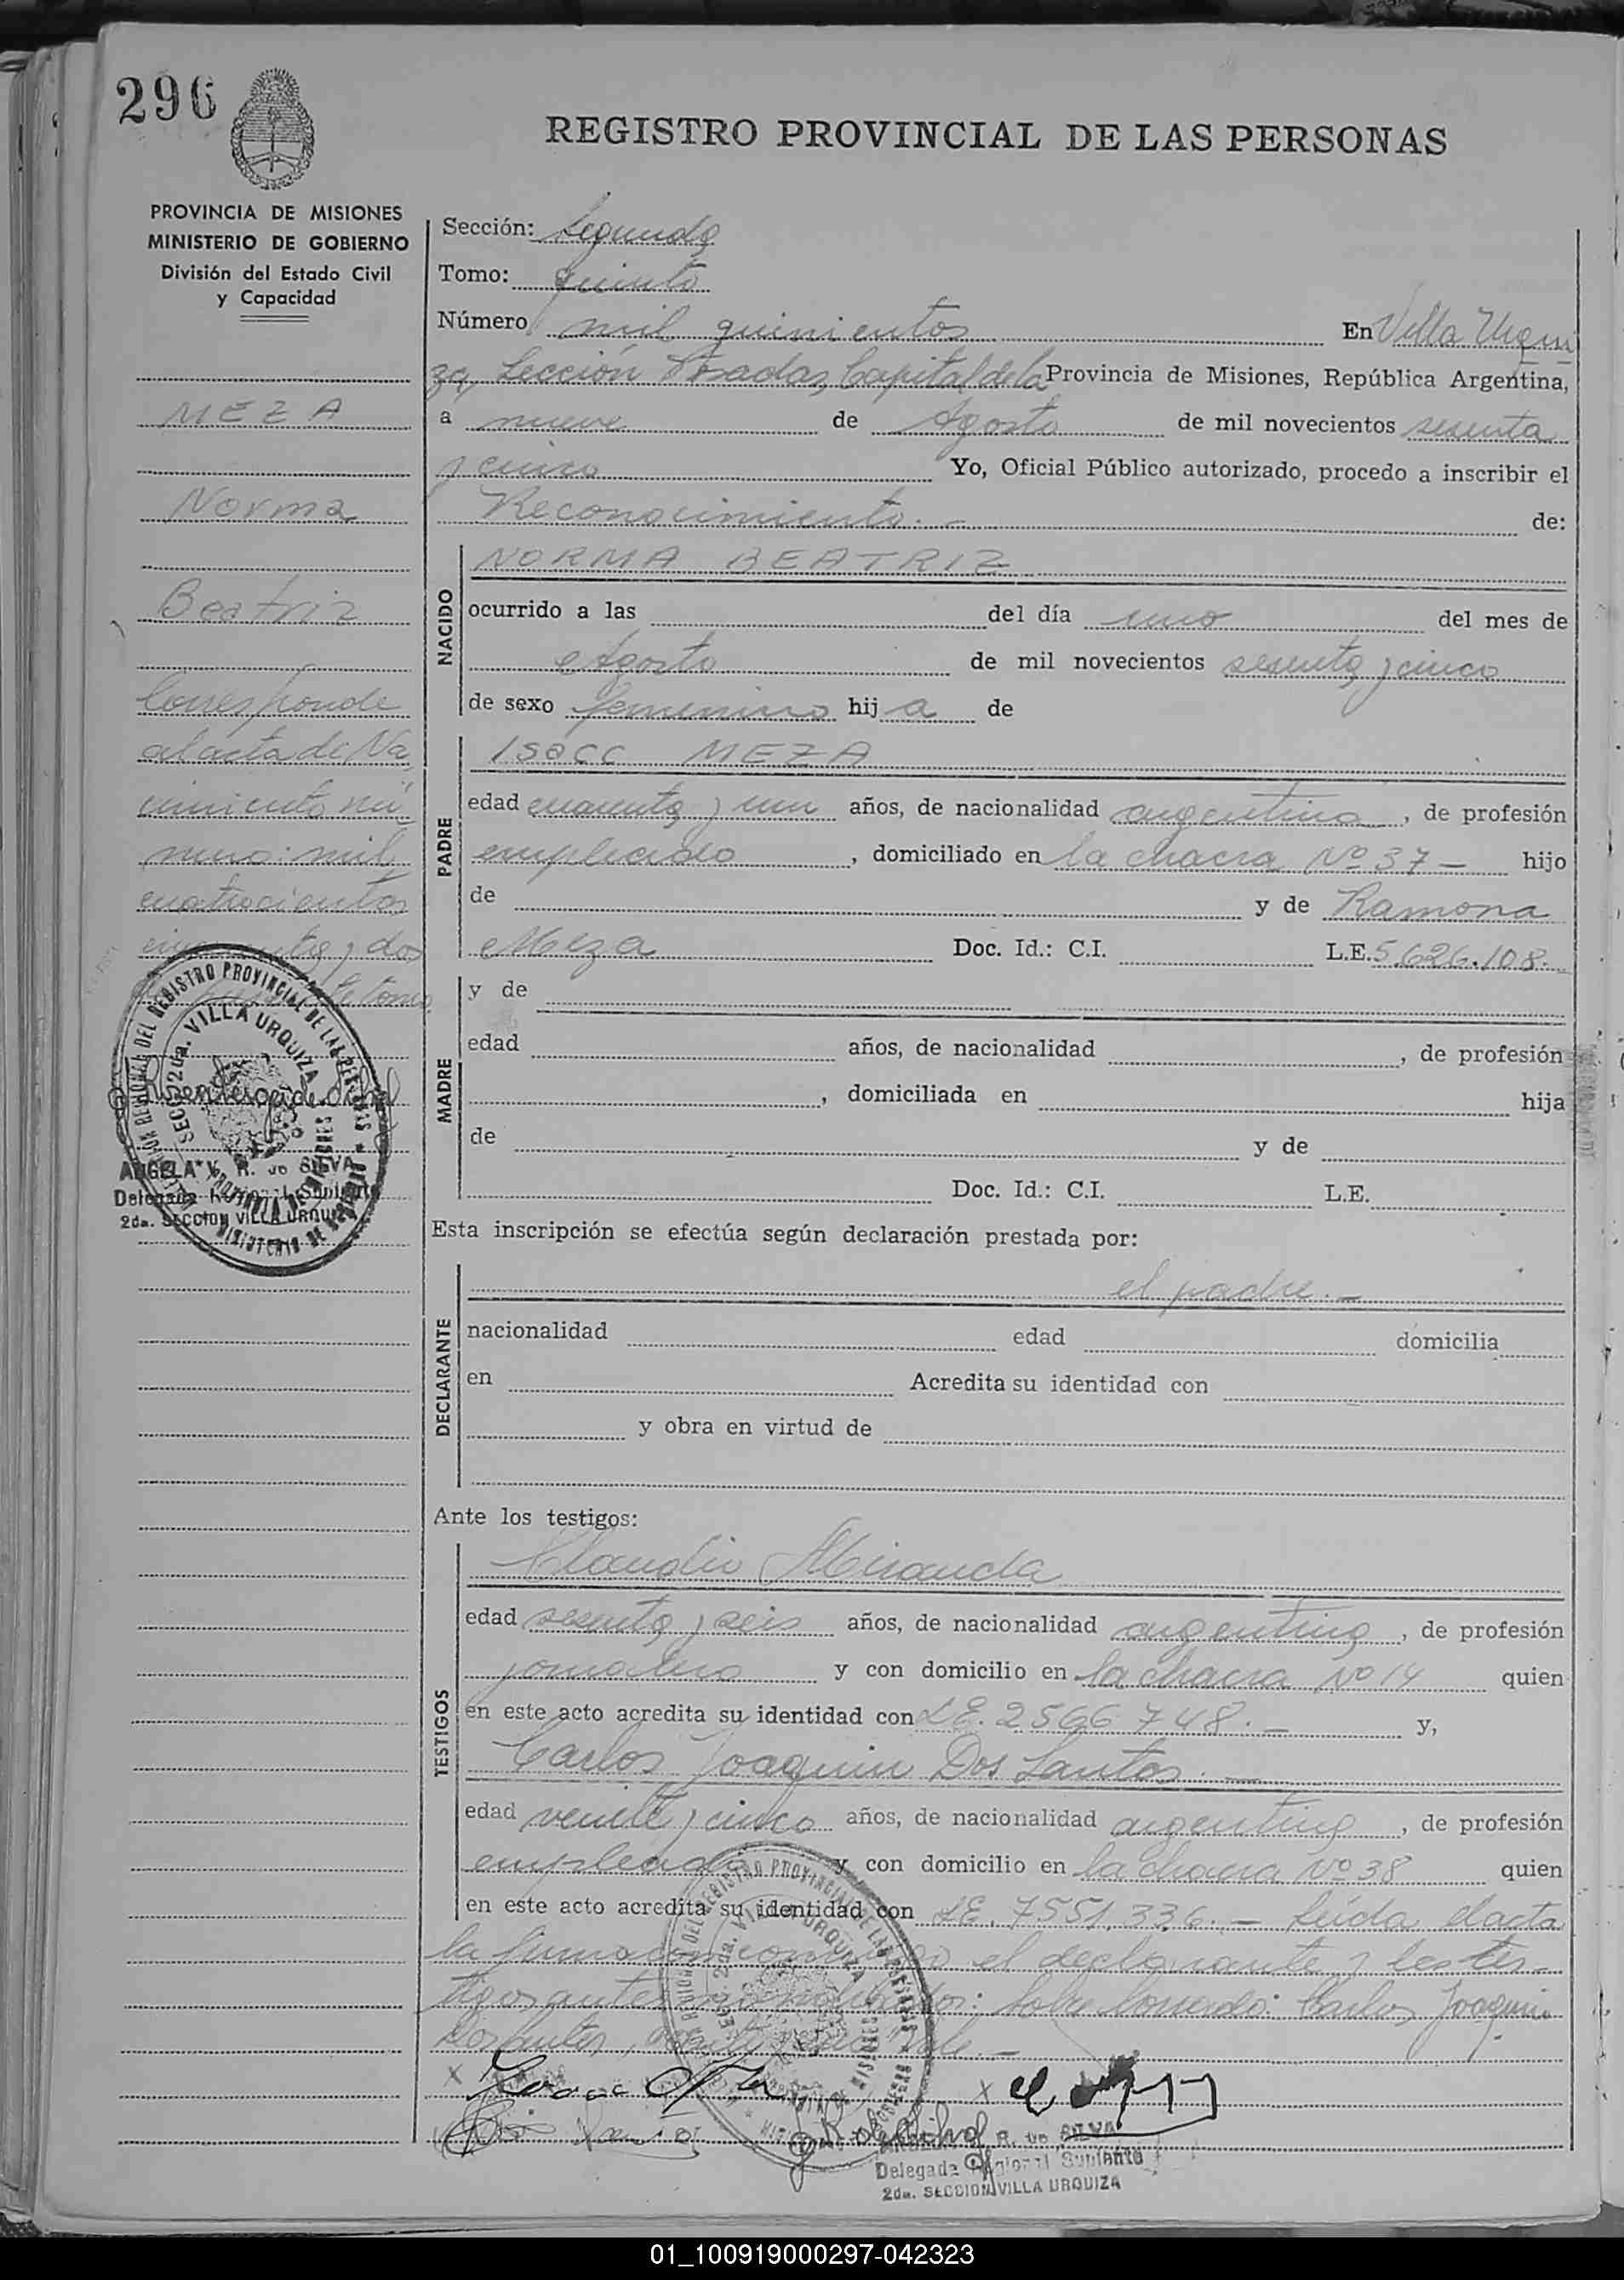 296
REGISTRO PROVINCIAL DE LAS PERSONAS
PROVINCIA DE MISIONES
MINISTERIO DE GOBIERNO
División del Estado Civil
y Capacidad
MEZA
Norma
Beatriz
Corresponde
al acta de Na
cimiento nú
mero: mil
cuatrocientos
cincuenta y dos
tomo
REGISTRO PROVINCIAL DE LAS PERSONAS
SECC. 2da. VILLA URQUIZA
ANGELA V. R. de SILVA
Delegada Regional Suplente
2da. SECCION VILLA URQUIZA
Sección: Segunda
Tomo: quinto
Número mil quinientos En Villa Urqui
za, Sección Posadas, Capital de la Provincia de Misiones, República Argentina,
a nueve de Agosto de mil novecientos sesenta
y cinco Yo, Oficial Público autorizado, procedo a inscribir el
Reconocimiento.- de:
NACIDO
NORMA BEATRIZ
ocurrido a las del día uno del mes de
Agosto de mil novecientos sesenta y cinco
de sexo femenino hij a de
PADRE
Isacc MEZA
edad cuarenta y un años, de nacionalidad argentina, de profesión
empleado, domiciliado en la chacra Nº 37 - hijo
de y de Ramona
Meza Doc. Id.: C.I. L.E. 5.626.108.
MADRE
y de
edad años, de nacionalidad , de profesión
, domiciliada en hija
de y de
Doc. Id.: C.I. L.E.
Esta inscripción se efectúa según declaración prestada por:
DECLARANTE
el padre.-
nacionalidad edad domicilia
en Acredita su identidad con
y obra en virtud de
Ante los testigos:
TESTIGOS
Claudio Miranda
edad sesenta y seis años, de nacionalidad argentina, de profesión
jornalero y con domicilio en la chacra Nº 14 quien
en este acto acredita su identidad con LE. 2566748.- y,
Carlos Joaquin Dos Santos.-
edad veinte y cinco años, de nacionalidad argentina, de profesión
empleado y con domicilio en la chacra Nº 38 quien
en este acto acredita su identidad con LE. 7551.336.- Leída el acta
la firma conmigo el declarante y los tes-
tigos antes nombrados: Sobre borrado: Carlos Joaquin
Dos Santos, Vale.-
REGISTRO PROVINCIAL DE LAS PERSONAS
2da. VILLA URQUIZA
R. de SILVA
Delegada Regional Suplente
2da. SECCION VILLA URQUIZA
01_100919000297-042323